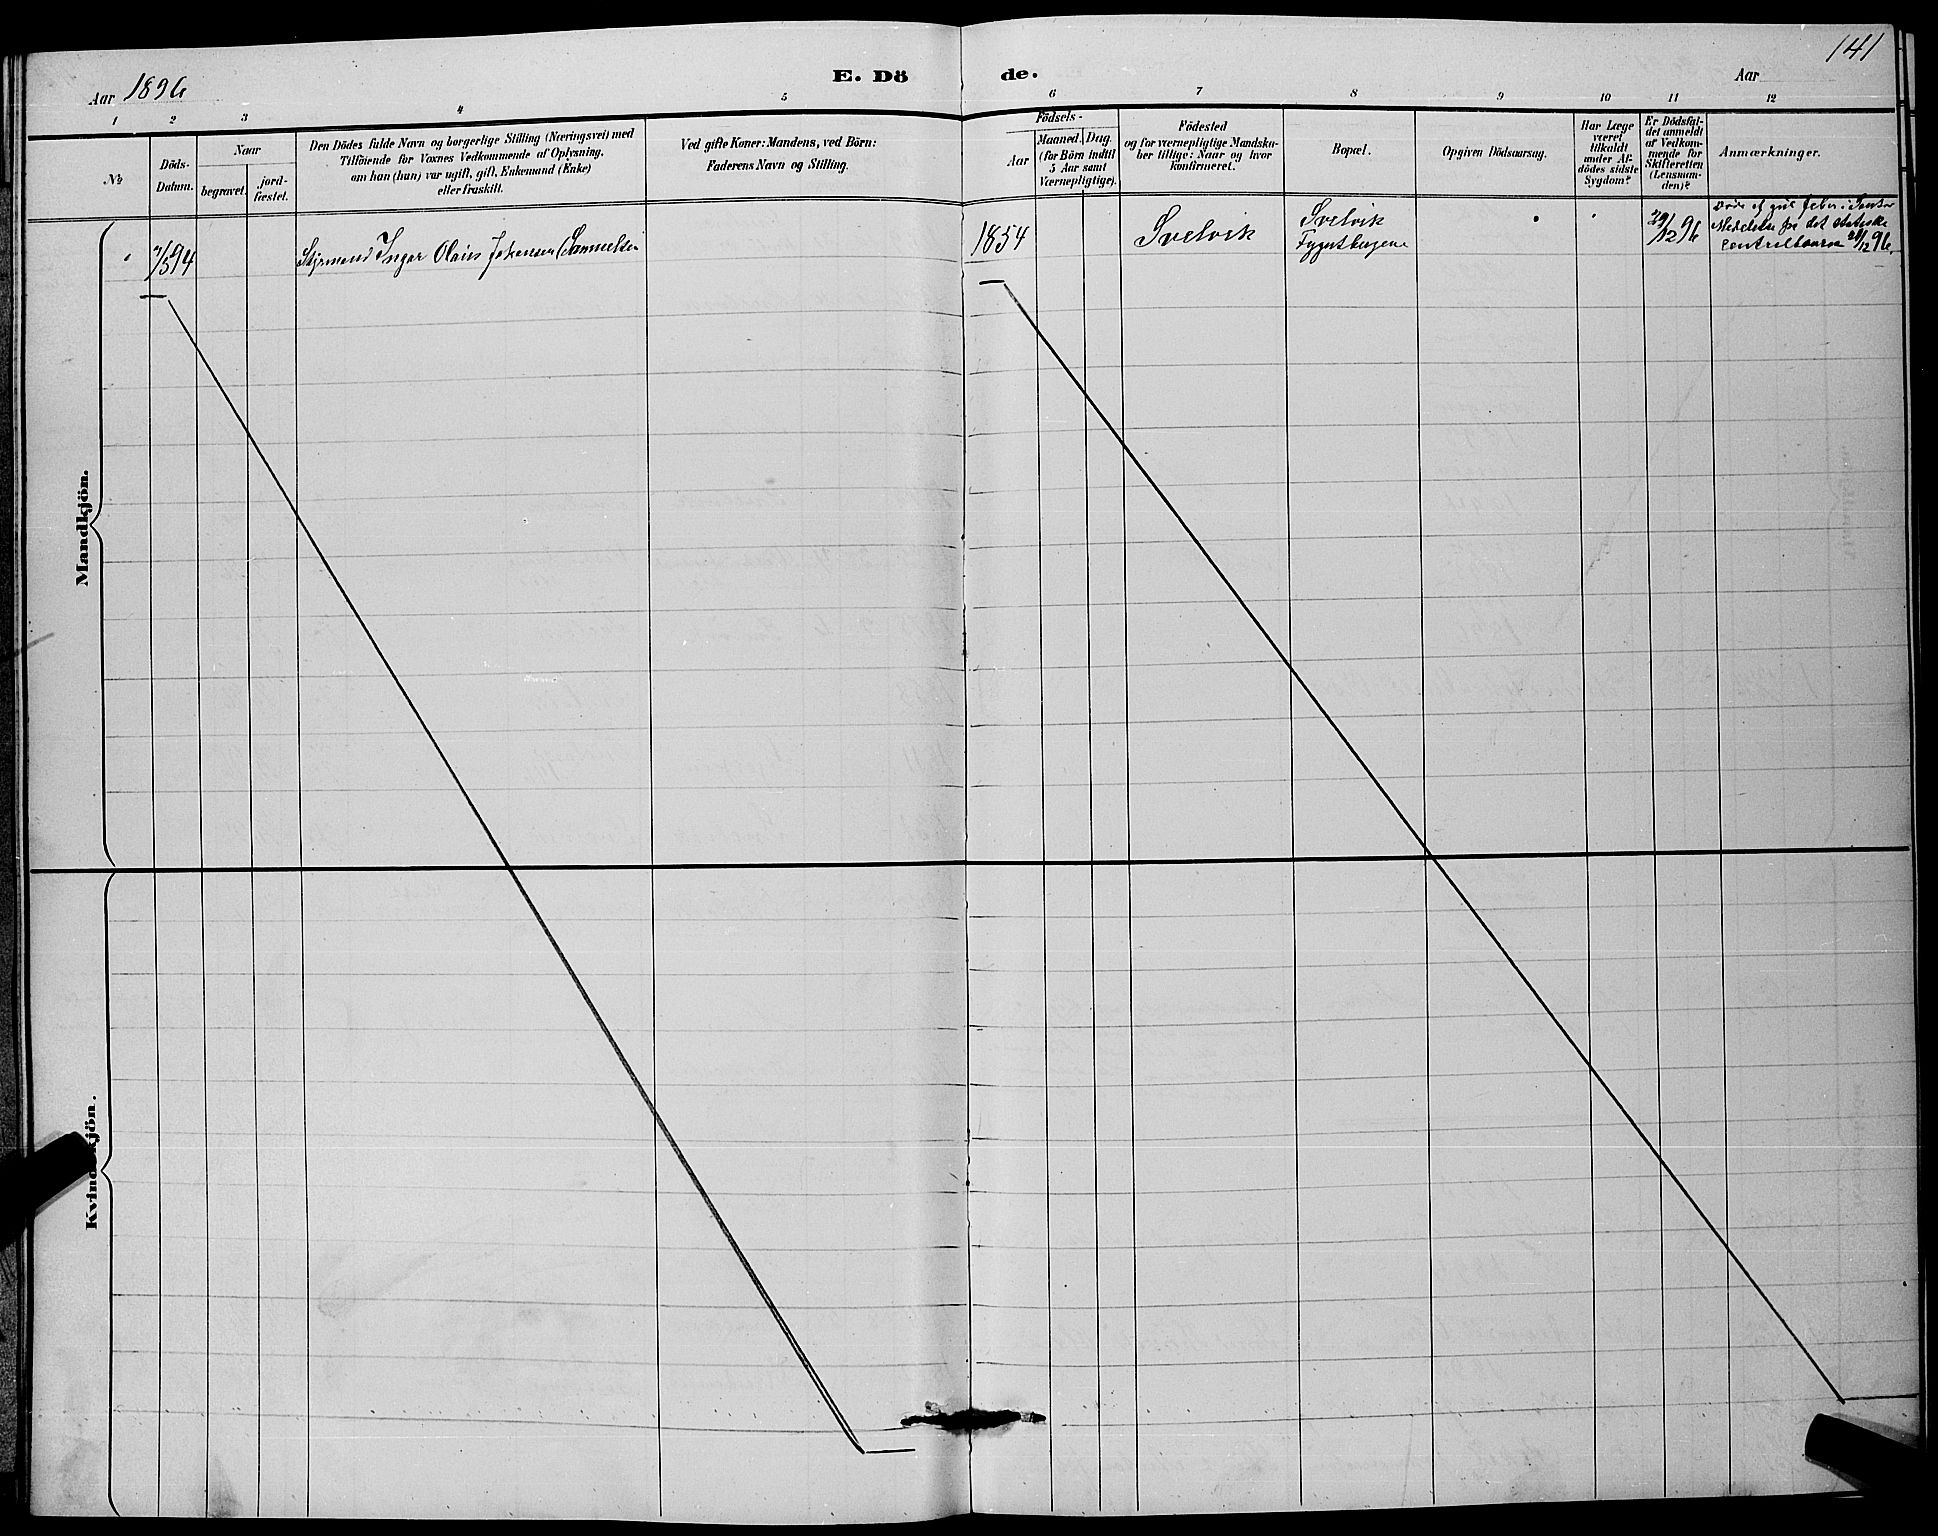 141
E. Dö de.
Aar 1896
Aar
1 2 3 4 5 6 7 8 9 10 11 12
№
Döds-
Datum.
Naar
begravet.
jord-
fæstet.
Den Dödes fulde Navn og borgerlige Stilling (Næringsvei) med
Tilföiende for Voxnes Vedkommende af Oplysning,
om han (hun) var ugift, gift, Enkemand (Enke)
eller fraskilt.
Ved gifte Koner: Mandens, ved Börn:
Faderens Navn og Stilling.
Födsels-
Aar
Maaned. Dag.
(for Börn indtil
5 Aar samt
Værnepligtige).
Födested
og for værnepligtige Mandska-
ber tillige: Naar og hvor
konfirmeret.
Bopæl.
Opgiven Dödsaarsag.
Har Læge
været
tilkaldt
under Af-
dödes sidste
Sygdom?
Er Dödsfal-
det anmeldt
af Vedkom-
mende for
Skifteretten
(Lensman-
den)?
Anmærkninger.
Mandkjön.
7/5 94
Styrmand Ingar Olaus Johansen (Samuelsen
1854
Svelvik
Svelvik
29/12 96
Döde af gul feber i Santos
Meddelelse fra det statistiske
Centralbureau 28/12 96.
Kvindekjön.